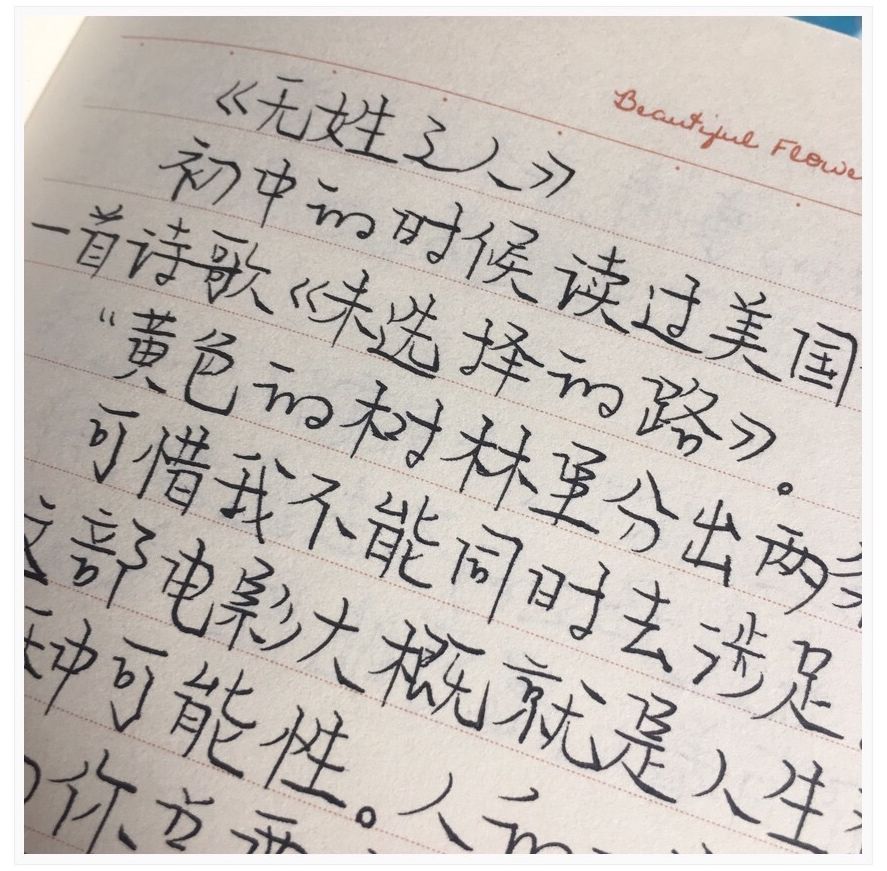 Beautiful Flowe
《无姓之人》
初中的时候读过美国
一首诗歌《未选择的路》。
“黄色的树林里分出两条
可惜我不能同时去涉足
这部电影大概就是人生
种可能性。人和
你